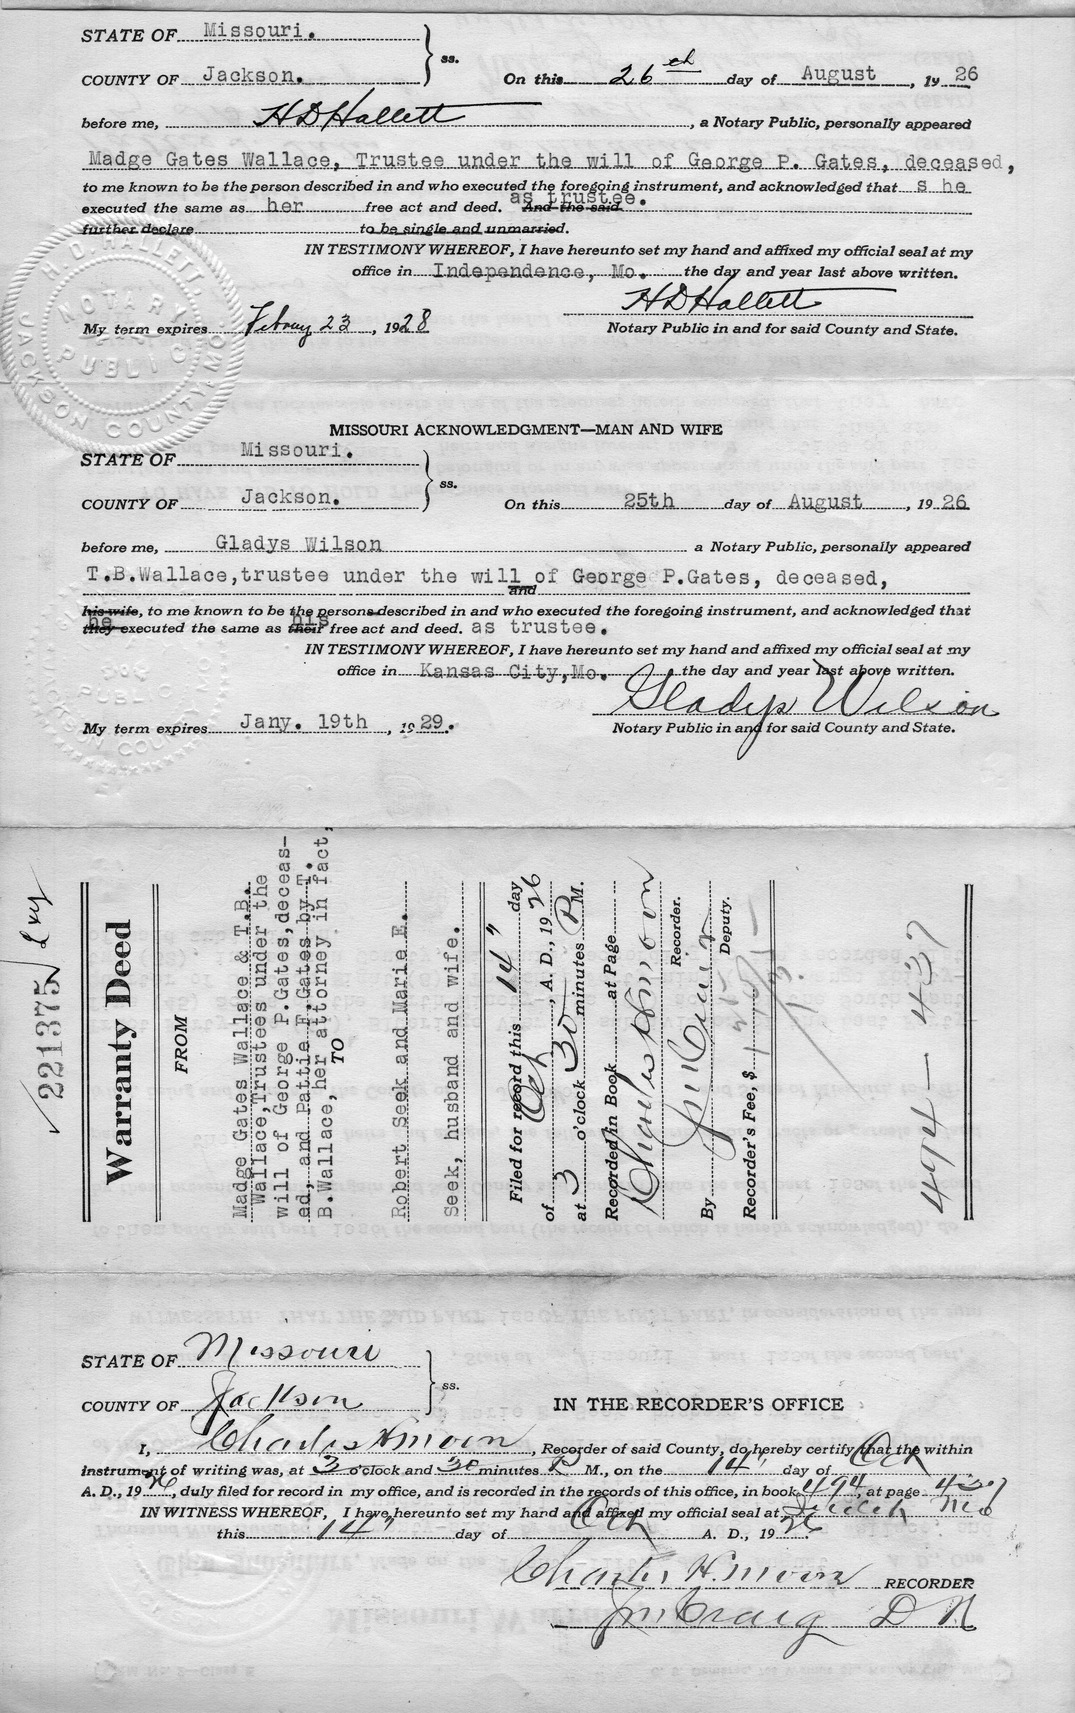 STATE OF Missouri.
ss.
COUNTY OF Jackson. On this 26th day of August, 1926
before me, H D Hallett, a Notary Public, personally appeared
Madge Gates Wallace, Trustee under the will of George P. Gates, deceased,
to me known to be the person described in and who executed the foregoing instrument, and acknowledged that s he
executed the same as her free act and deed. as trustee. And the said
further declare to be single and unmarried.
IN TESTIMONY WHEREOF, I have hereunto set my hand and affixed my official seal at my
office in Independence, Mo. the day and year last above written.
H D Hallett
My term expires 23, 1928 Notary Public in and for said County and State.
H. D. HALLETT
NOTARY PUBLIC
JACKSON COUNTY, MO.
MISSOURI ACKNOWLEDGMENT—MAN AND WIFE
STATE OF Missouri.
ss.
COUNTY OF Jackson. On this 25th day of August, 1926
before me, Gladys Wilson a Notary Public, personally appeared
T.B.Wallace,trustee under the will of George P.Gates, deceased,
and
his wife, to me known to be the persons described in and who executed the foregoing instrument, and acknowledged that
he they executed the same as his their free act and deed. as trustee.
IN TESTIMONY WHEREOF, I have hereunto set my hand and affixed my official seal at my
office in Kansas City,Mo. the day and year last above written.
Gladys Wilson
My term expires Jany. 19th, 1929. Notary Public in and for said County and State.
221375
Warranty Deed
FROM
Madge Gates Wallace & T.B.
Wallace,Trustees under the
will of George P.Gates,deceas-
ed, and Pattie E.Gates by T.
B.Wallace, her attorney in fact,
TO
Robert Seek and Marie E.
Seek, husband and wife.
Filed for record this 14" day
of Oct, A. D., 1926
at 3 o'clock 30 minutes P M.
Recorded in Book at Page
Charles H Moon
Recorder.
By J M Craig
Deputy.
Recorder's Fee, $
494 - 437
STATE OF Missouri
ss.
COUNTY OF Jackson IN THE RECORDER'S OFFICE
I, Charles H Moon, Recorder of said County, do hereby certify that the within
instrument of writing was, at 3 o'clock and 30 minutes P M., on the 14" day of Oct
A. D., 1926, duly filed for record in my office, and is recorded in the records of this office, in book 494, at page 437
IN WITNESS WHEREOF, I have hereunto set my hand and affixed my official seal at Mo
this 14" day of Oct A. D., 1926
Charles H. Moon RECORDER
J M Craig D R